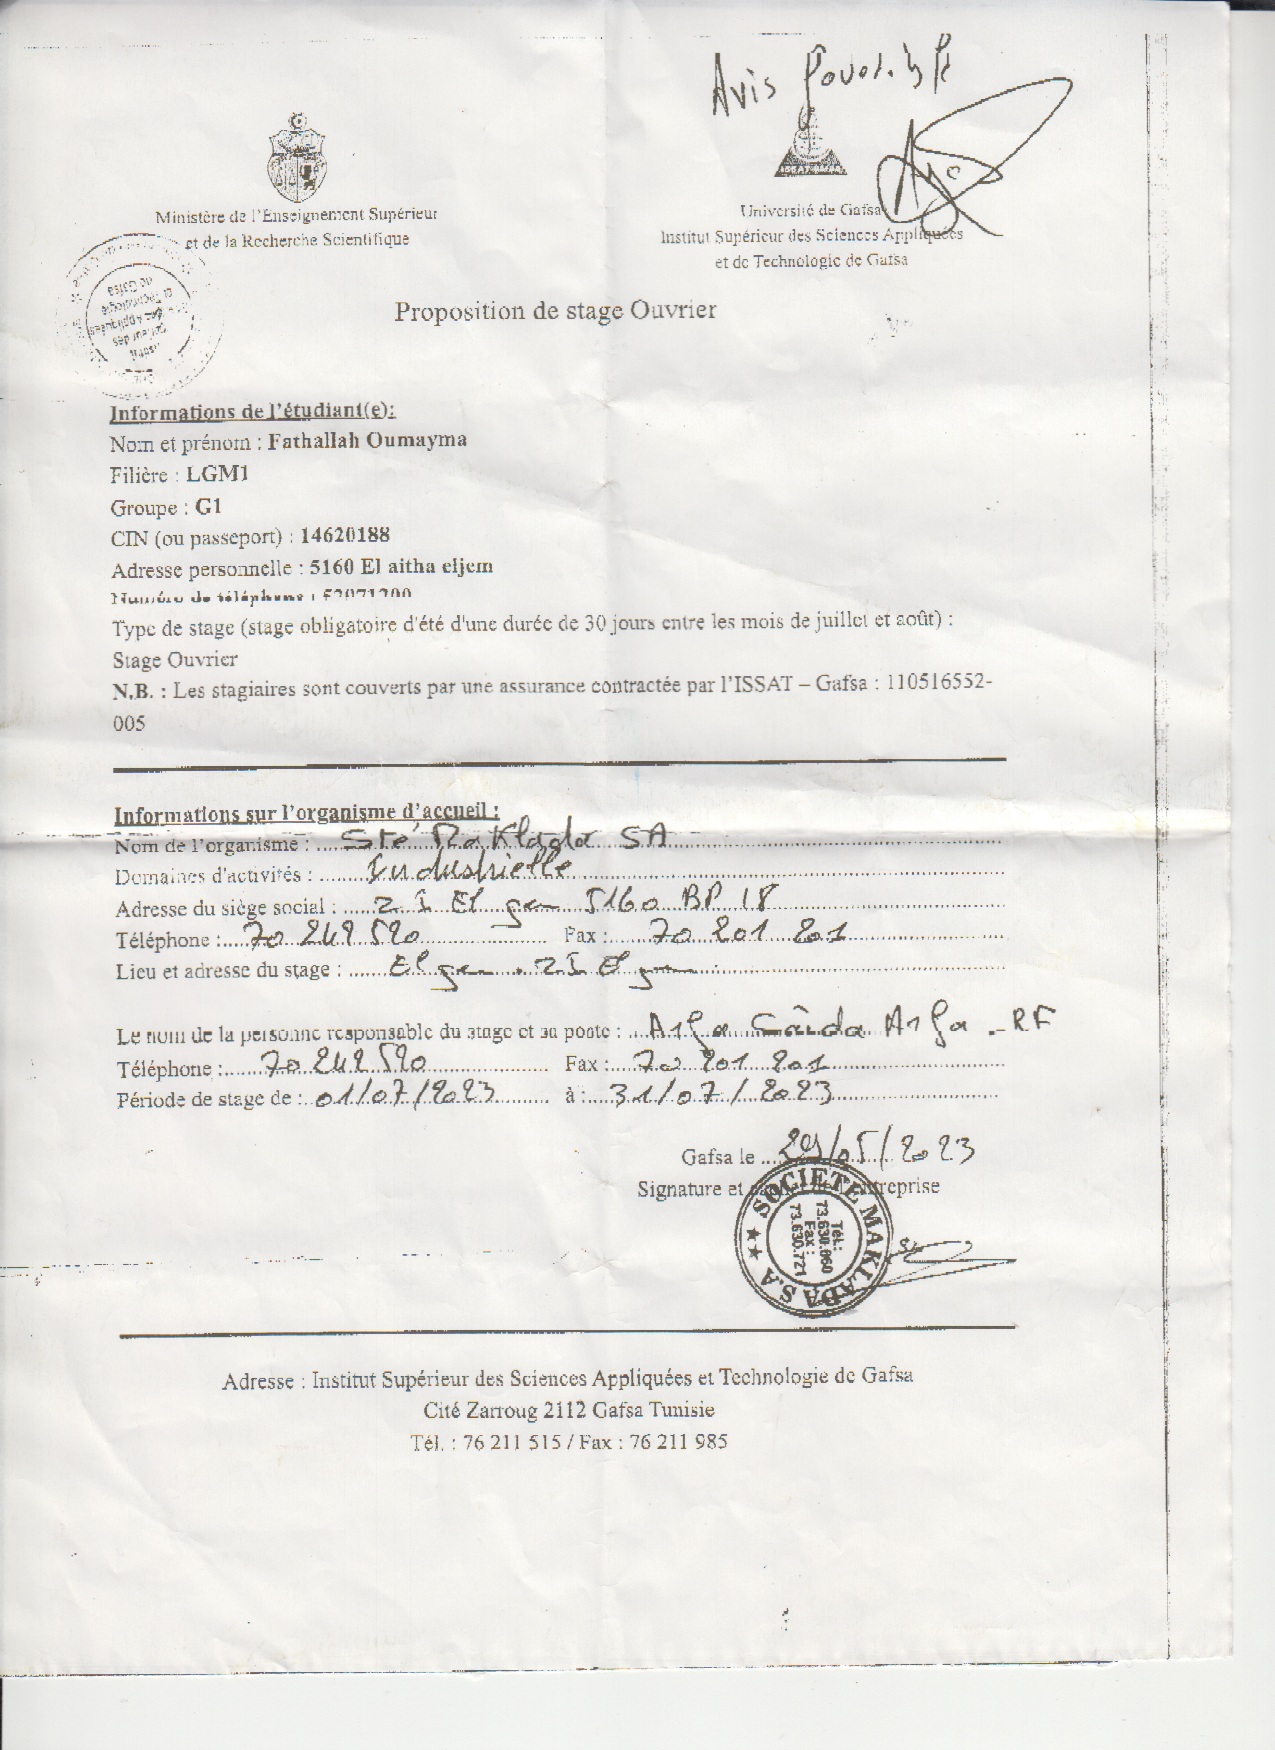 Avis favorable
Ministère de l'Enseignement Supérieur
et de la Recherche Scientifique
Université de Gafsa
Institut Supérieur des Sciences Appliquées
et de Technologie de Gafsa
Proposition de stage Ouvrier
Informations de l'étudiant(e):
Nom et prénom : Fathallah Oumayma
Filière : LGM1
Groupe : G1
CIN (ou passeport) : 14620188
Adresse personnelle : 5160 El aitha eljem
Numéro de téléphone :
Type de stage (stage obligatoire d'été d'une durée de 30 jours entre les mois de juillet et août) :
Stage Ouvrier
N.B. : Les stagiaires sont couverts par une assurance contractée par l'ISSAT – Gafsa : 110516552-
005
Informations sur l'organisme d'accueil :
Nom de l'organisme : Sté Maklada SA
Domaines d'activités : Industrielle
Adresse du siège social : ZI El jem 5160 BP 18
Téléphone : 70 242 520 Fax : 70 201 201
Lieu et adresse du stage : El jem . ZI El jem
Le nom de la personne responsable du stage et sa poste : Arfa Saida Arfa - RF
Téléphone : 70 242 520 Fax : 70 201 201
Période de stage de : 01/07/2023 à : 31/07/2023
Gafsa le 29/05/2023
Signature et cachet de l'entreprise
SOCIETE MAKLADA S.A
Tél.:
73.630.060
Fax :
73.630.721
Adresse : Institut Supérieur des Sciences Appliquées et Technologie de Gafsa
Cité Zarroug 2112 Gafsa Tunisie
Tél. : 76 211 515 / Fax : 76 211 985